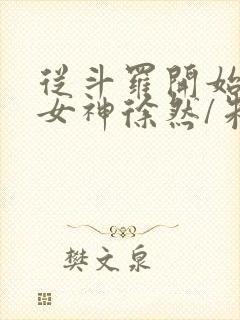 從斗羅開始
女神徐然/朱
樊文泉